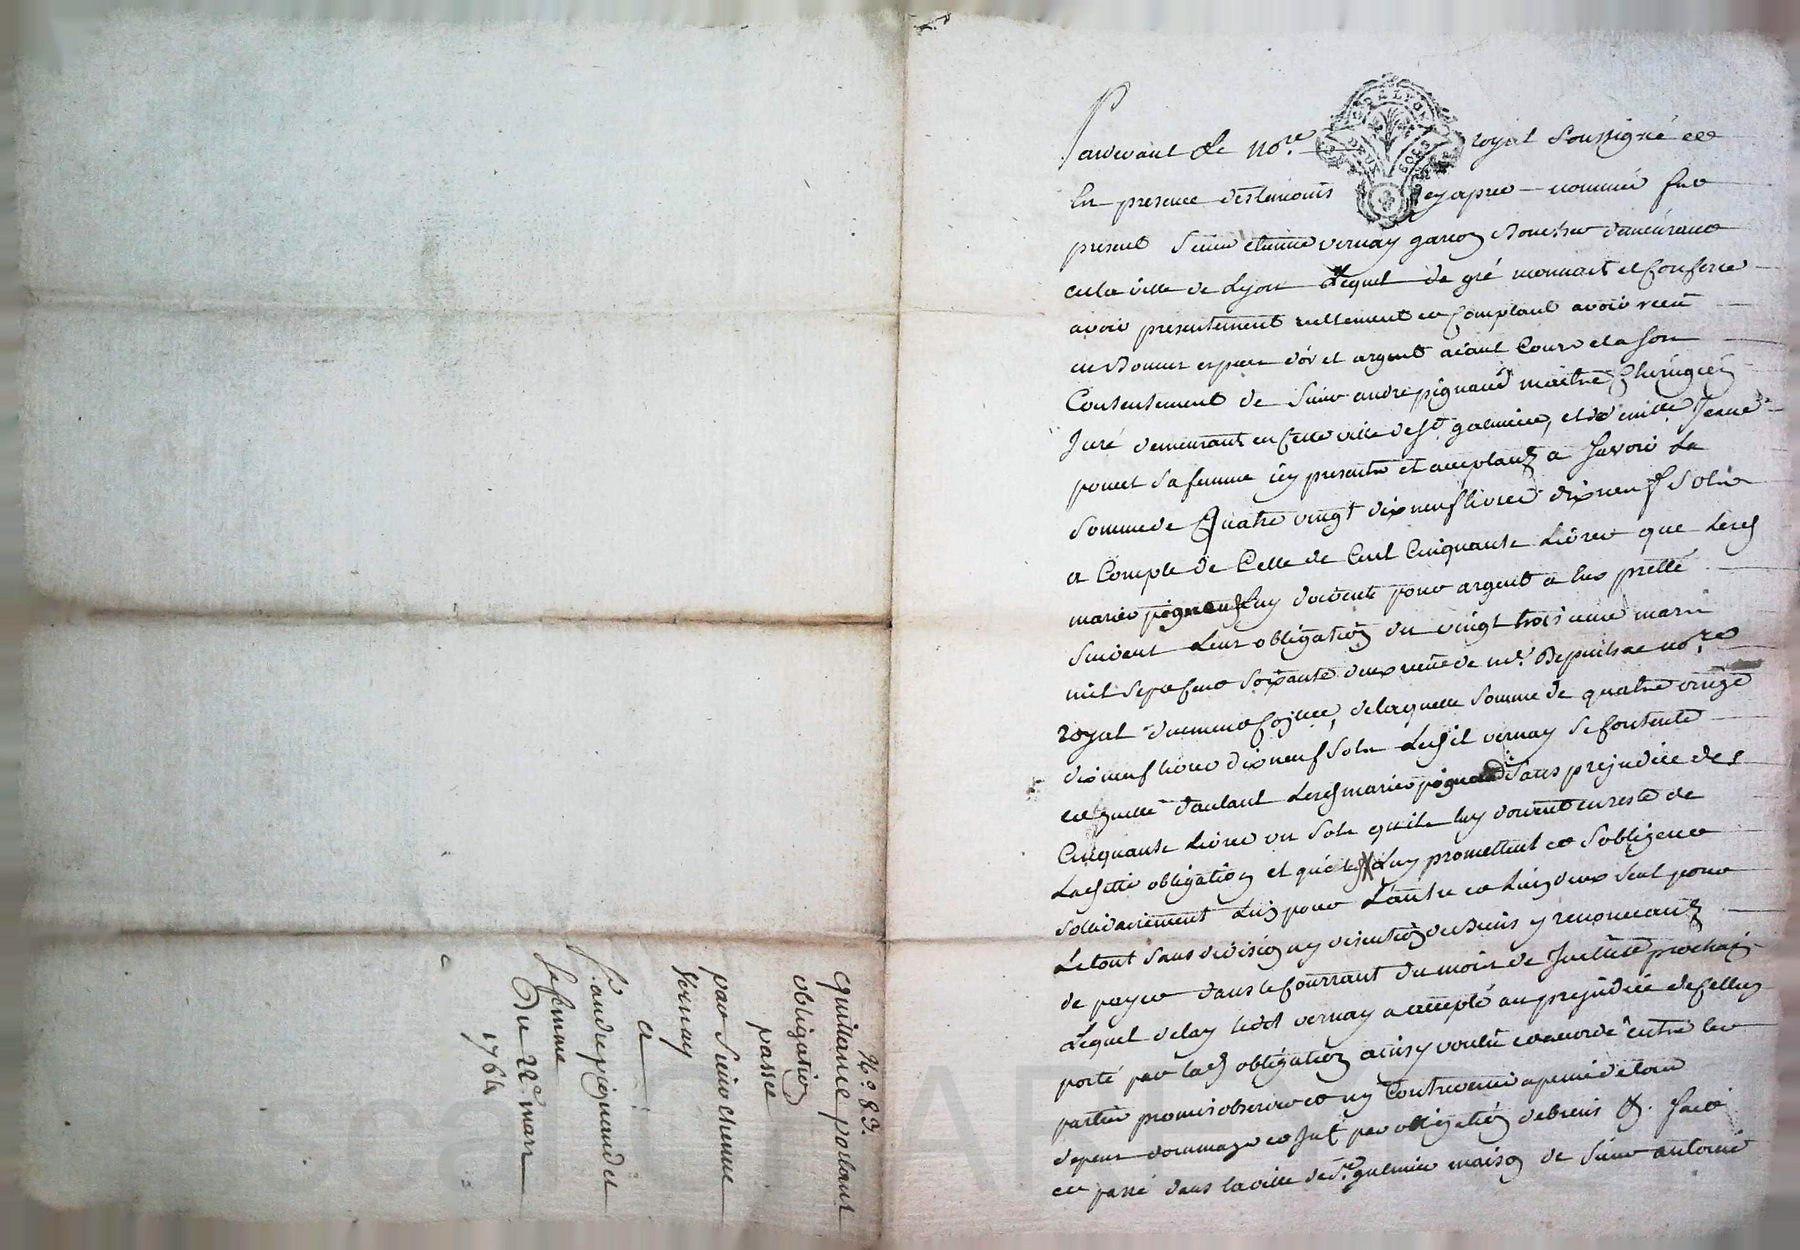 Pardevant Le no.re royal soussigné et
En presence des temoins cy apres nommés fut
present sieur etienne vernay garçon Boucher demeurant
en la ville de Lyon Lequel de gré reconnait et confesse
avoir presentement reellement et comptant avoir receu
en Bonnes especes d'or et argent aiant Cours et a son
Contentement de sieur andre pignaud maitre chirugien
Juré demeurant en cette ville de St galmier, et d'elle Jeanne
poncet sa femme icy presents et acceptants a savoir La
somme de Quatre vingt dix neuf livres dix neuf sols
a Compte de Celle de Cent Cinquante Livres que Lesd
mariés pignaud luy doivent pour argent a eux pretté
suivant Leur obligation du vingt trois mars
mil sept cent soixante deux receue de me. no.re
royal duement , de laquelle somme de quatre vingt
dix neuf livres dix neuf sols Led sr vernay se contente
et quitte d'autant Lesd mariés pignaud sans prejudice des
Cinquante Livres un sols quils luy doivent en reste de
Laditte obligation et que Luy promettent et s'obligent
solidairement L'un pour L'autre et L'un d'eux seul pour
Le tout sans division ny discution de Biens y renonceant
de payer dans le courrant du mois de Juillet prochain
Lequel delay ledt vernay a accepté au prejudice de celluy
porté par lad obligation ainsy voulu et accordé entre les
parties promis observer et ny Contrevenir a peine de tous
depens dommages et Int. par obligation de biens &. fait
et passé dans la ville de St. galmier maison de sieur antoine
GEN DE LYON
DEUX SOLS
N.o 83.
quittance portant
obligation
passée
par sieur etienne
Vernay
a
sr. andre pignaud et
sa femme
Du 22e mars
1764